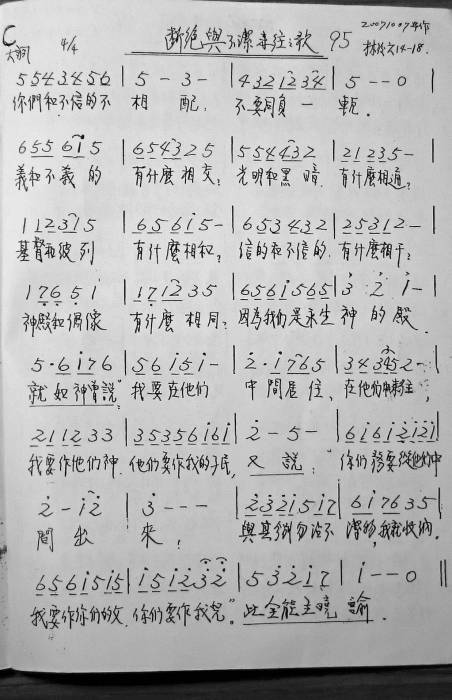 C 大調 4/4 断绝與不潔毒往之歌 95 20071007
林後六14-18.
5543456 | 5 - 3 - | 4321234 | 5 - - 0 |
你們和不信的不 相 配, 不要同負一 軛.
655615 | 654325 | 554432 | 21235 - |
義和不義的 有什麼相交? 光明和黑暗 有什麼相通?
112315 | 65615 - | 653432 | 25312 - |
基督和彼列 有什麼相和? 信的和不信的 有什麼相干?
17651 | 171235 | 6561565 | 3 2 1 - |
神殿和偶像 有什麼相同? 因為我們是永生 神 的 殿.
5·6176 | 56151 - | 2·1765 | 343452 - |
就如神曾說:"我要在他們 中間居住, 在他們中來往;
211233 | 35356161 | 2 - 5 - | 61612121 |
我要作他們神, 他們要作我的子民, 又 說:"你們務要從他們中
2 - 12 | 3 - - - | 2321517 | 617635 |
間 出 來, 與其別勿沾不 潔的物,我就收納.
6561515 | 151232 | 53217 | 1 - - 0 ‖
我要作你們的父, 你們要作我兒"。此全能主曉 諭.